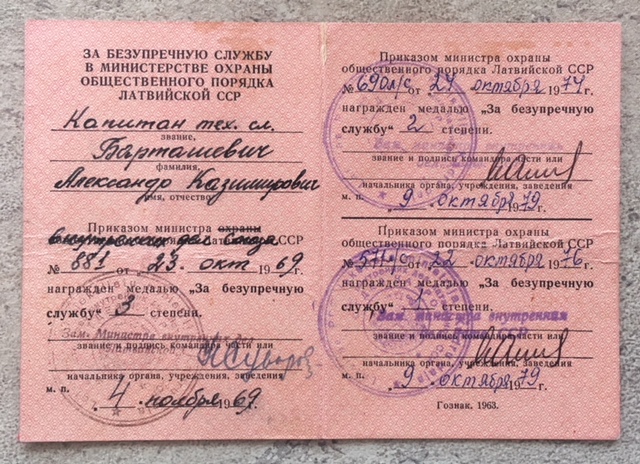 ЗА БЕЗУПРЕЧНУЮ СЛУЖБУ
В МИНИСТЕРСТВЕ ОХРАНЫ
ОБЩЕСТВЕННОГО ПОРЯДКА
ЛАТВИЙСКОЙ ССР
Капитан тех. сл.
звание,
Барташевич
фамилия,
Александр Казимирович
имя, отчество
Приказом министра охраны
внутренних дел Союза ССР
№ 881 от 23. окт 1969 г.
награжден медалью „За безупречную
службу" 3 степени.
Зам. Министра внутренних
звание и подпись командира части или
Суворов
начальника органа, учреждения, заведения
м. п.
4 ноября 1969.
Приказом министра охраны
общественного порядка Латвийской ССР
№ 690л/с от 24 октября 1974г.
награжден медалью „За безупречную
службу" 2 степени.
Зам.
звание и подпись командира части или
начальника органа, учреждения, заведения
м. п. 9 октября 1979г.
Приказом министра охраны
общественного порядка Латвийской ССР
№ 571л/с от 22 октября 1976г.
награжден медалью „За безупречную
службу" 1 степени.
Зам. министра внутренних
ССР
звание и подпись командира части или
начальника органа, учреждения, заведения
м. п. 9 октября 1979г.
Гознак. 1963.